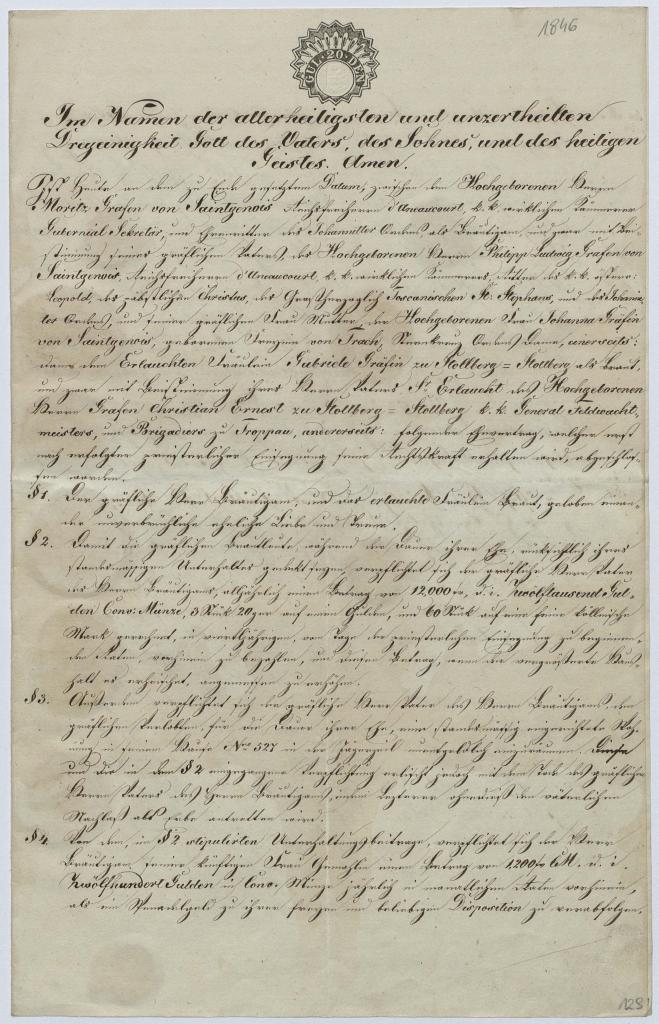 1846
GUL·20·DEN
Im Namen der allerheiligsten und unzertheilten
Dreyeinigkeit Gott des Vaters, des Sohnes, und des heiligen
Geistes. Amen.
Ist Heute an dem zu Ende gesetzten Datum, zwischen dem Hochgeborenen Herrn
Moritz Grafen von Saintgenois Reichsfreiherrn d'Uneaucourt, k. k. wirklichen Kämmerer
Gubernial Sekretär, und Ehrenritter des Johanniter Ordens, als Bräutigam, und zwar mit Bei-
stimmung seines gräflichen Vaters, des Hochgeborenen Herrn Philipp Ludwig Grafen von
Saintgenois, Reichsfreiherrn d'Uneaucourt, k. k. wirklichen Kämmerers, Ritter des k. k. österr:
Leopold, des päbstlichen Christus, des Großherzoglich Toscanischen St: Stephans, und des Johanni-
ter Ordens, und seiner gräflichen Frau Mutter, der Hochgeborenen Frau Johanna Gräfin
von Saintgenois, geborenen Freyinn von Trach, Sternkreuz Ordens Dame, einerseits:
dann dem Erlauchten Fräulein Gabriele Gräfin zu Stollberg=Stollberg als Braut,
und zwar mit Beistimmung ihres Herrn Vaters Sr. Erlaucht des Hochgeborenen
Herrn Grafen Christian Ernest zu Stollberg=Stollberg k. k. General Feldwacht,
meisters, und Brigadiers zu Troppau, andererseits: folgender Ehevertrag, welcher erst
nach erfolgter priesterlicher Einsegnung seine Rechtskraft erhalten wird, abgeschlos-
sen worden.
§ 1. Der gräfliche Herr Bräutigam, und das erlauchte Fräulein Braut, geloben einan-
der unverbrüchliche eheliche Liebe und Treue.
§ 2. Damit die gräflichen Brautleute, während der Dauer ihrer Ehe, rücksichtlich ihres
standesmässigen Unterhaltes gedeckt seyen, verpflichtet sich der gräfliche Herr Vater
des Herrn Bräutigams, alljährlich einen Betrag von 12,000 fr, d. i. Zwölftausend Gul-
den Conv: Münze, 3 Stük 20ger auf einen Gulden, und 60 Stük auf eine feine köllnische
Mark gerechnet, in vierteljährigen, vom Tage der priesterlichen Einsegnung zu beginnen-
den Raten, vorhinein zu bezahlen, und diesen Betrag, wenn der vergrößerte Haus-
halt es erheischet, angemessen zu erhöhen.
§ 3. Außerdem verpflichtet sich der gräfliche Herr Vater des Herrn Bräutigams, den
gräflichen Verlobten, für die Dauer ihrer Ehe, eine standesmässig eingerichtete Woh-
nung in seinem Hause Nro 527 in der Jägerzeil unentgeldlich einzuräumen. Diese
und die in dem § 2 eingegangene Verpflichtung erlischt jedoch mit dem Tode des gräflichen
Herrn Vaters des Herrn Bräutigams, indem Lezterer ohnedieß den väterlichen
Nachlaß als Erbe antretten wird.
§ 4. Von dem, im § 2 stipulirten Unterhaltungsbeitrage, verpflichtet sich der Herr
Bräutigam seiner künftigen Frau Gemahlin einen Betrag von 1200 fr CM. d. i.
Zwölfhundert Gulden in Conv. Münze jährlich in monatlichen Raten vorhinein,
als ein Spenadelgeld zu ihrer freyen und beliebigen Disposition zu verabfolgen.
128